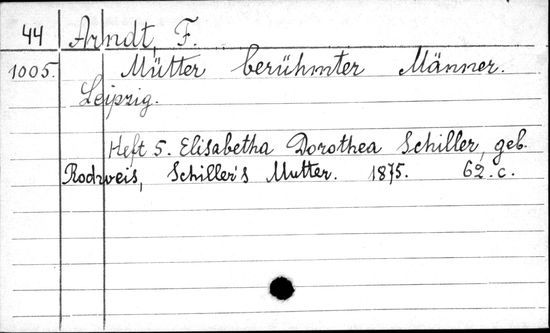 44 Arndt, F.
1005. Mütter berühmter Männer.
Leipzig.
Heft 5. Elisabetha Dorothea Schiller, geb.
Rodweis, Schiller's Mutter. 1875. 62. c.